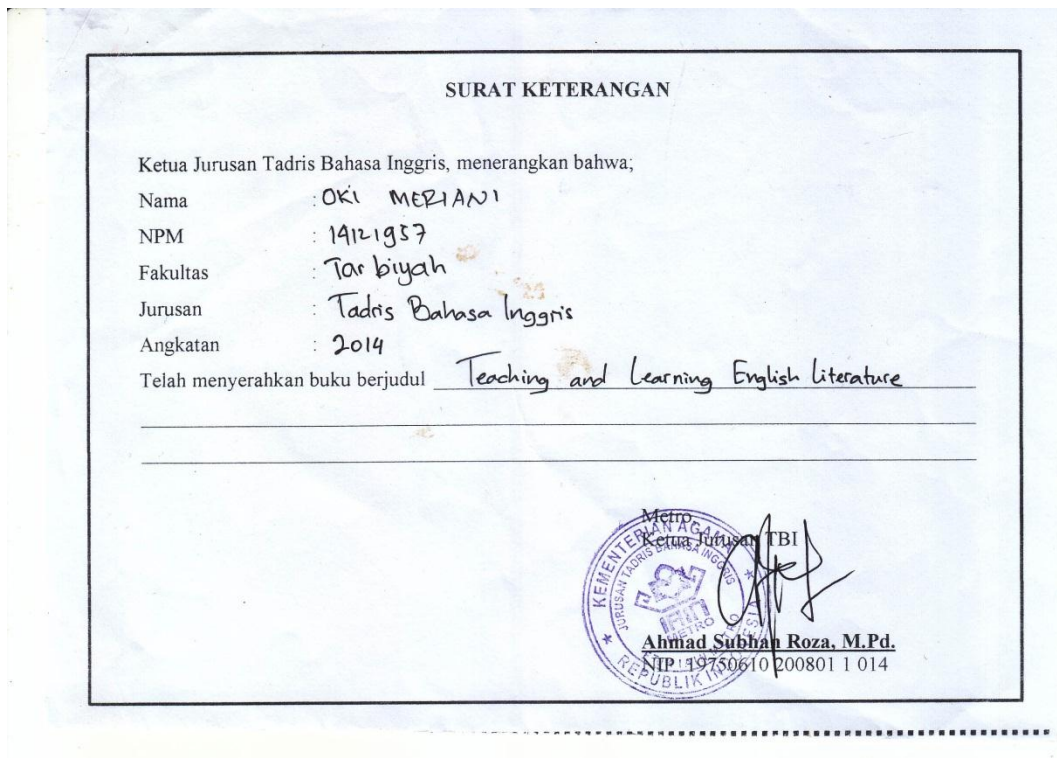 SURAT KETERANGAN
Ketua Jurusan Tadris Bahasa Inggris, menerangkan bahwa;
Nama : OKI MERIANI
NPM : 14121957
Fakultas : Tarbiyah
Jurusan : Tadris Bahasa Inggris
Angkatan : 2014
Telah menyerahkan buku berjudul Teaching and Learning English Literature
Metro,
Ketua Jurusan TBI
KEMENTERIAN AGAMA
JURUSAN TADRIS BAHASA INGGRIS
IAIN
METRO
REPUBLIK INDONESIA
Ahmad Subhan Roza, M.Pd.
NIP. 19750610 200801 1 014